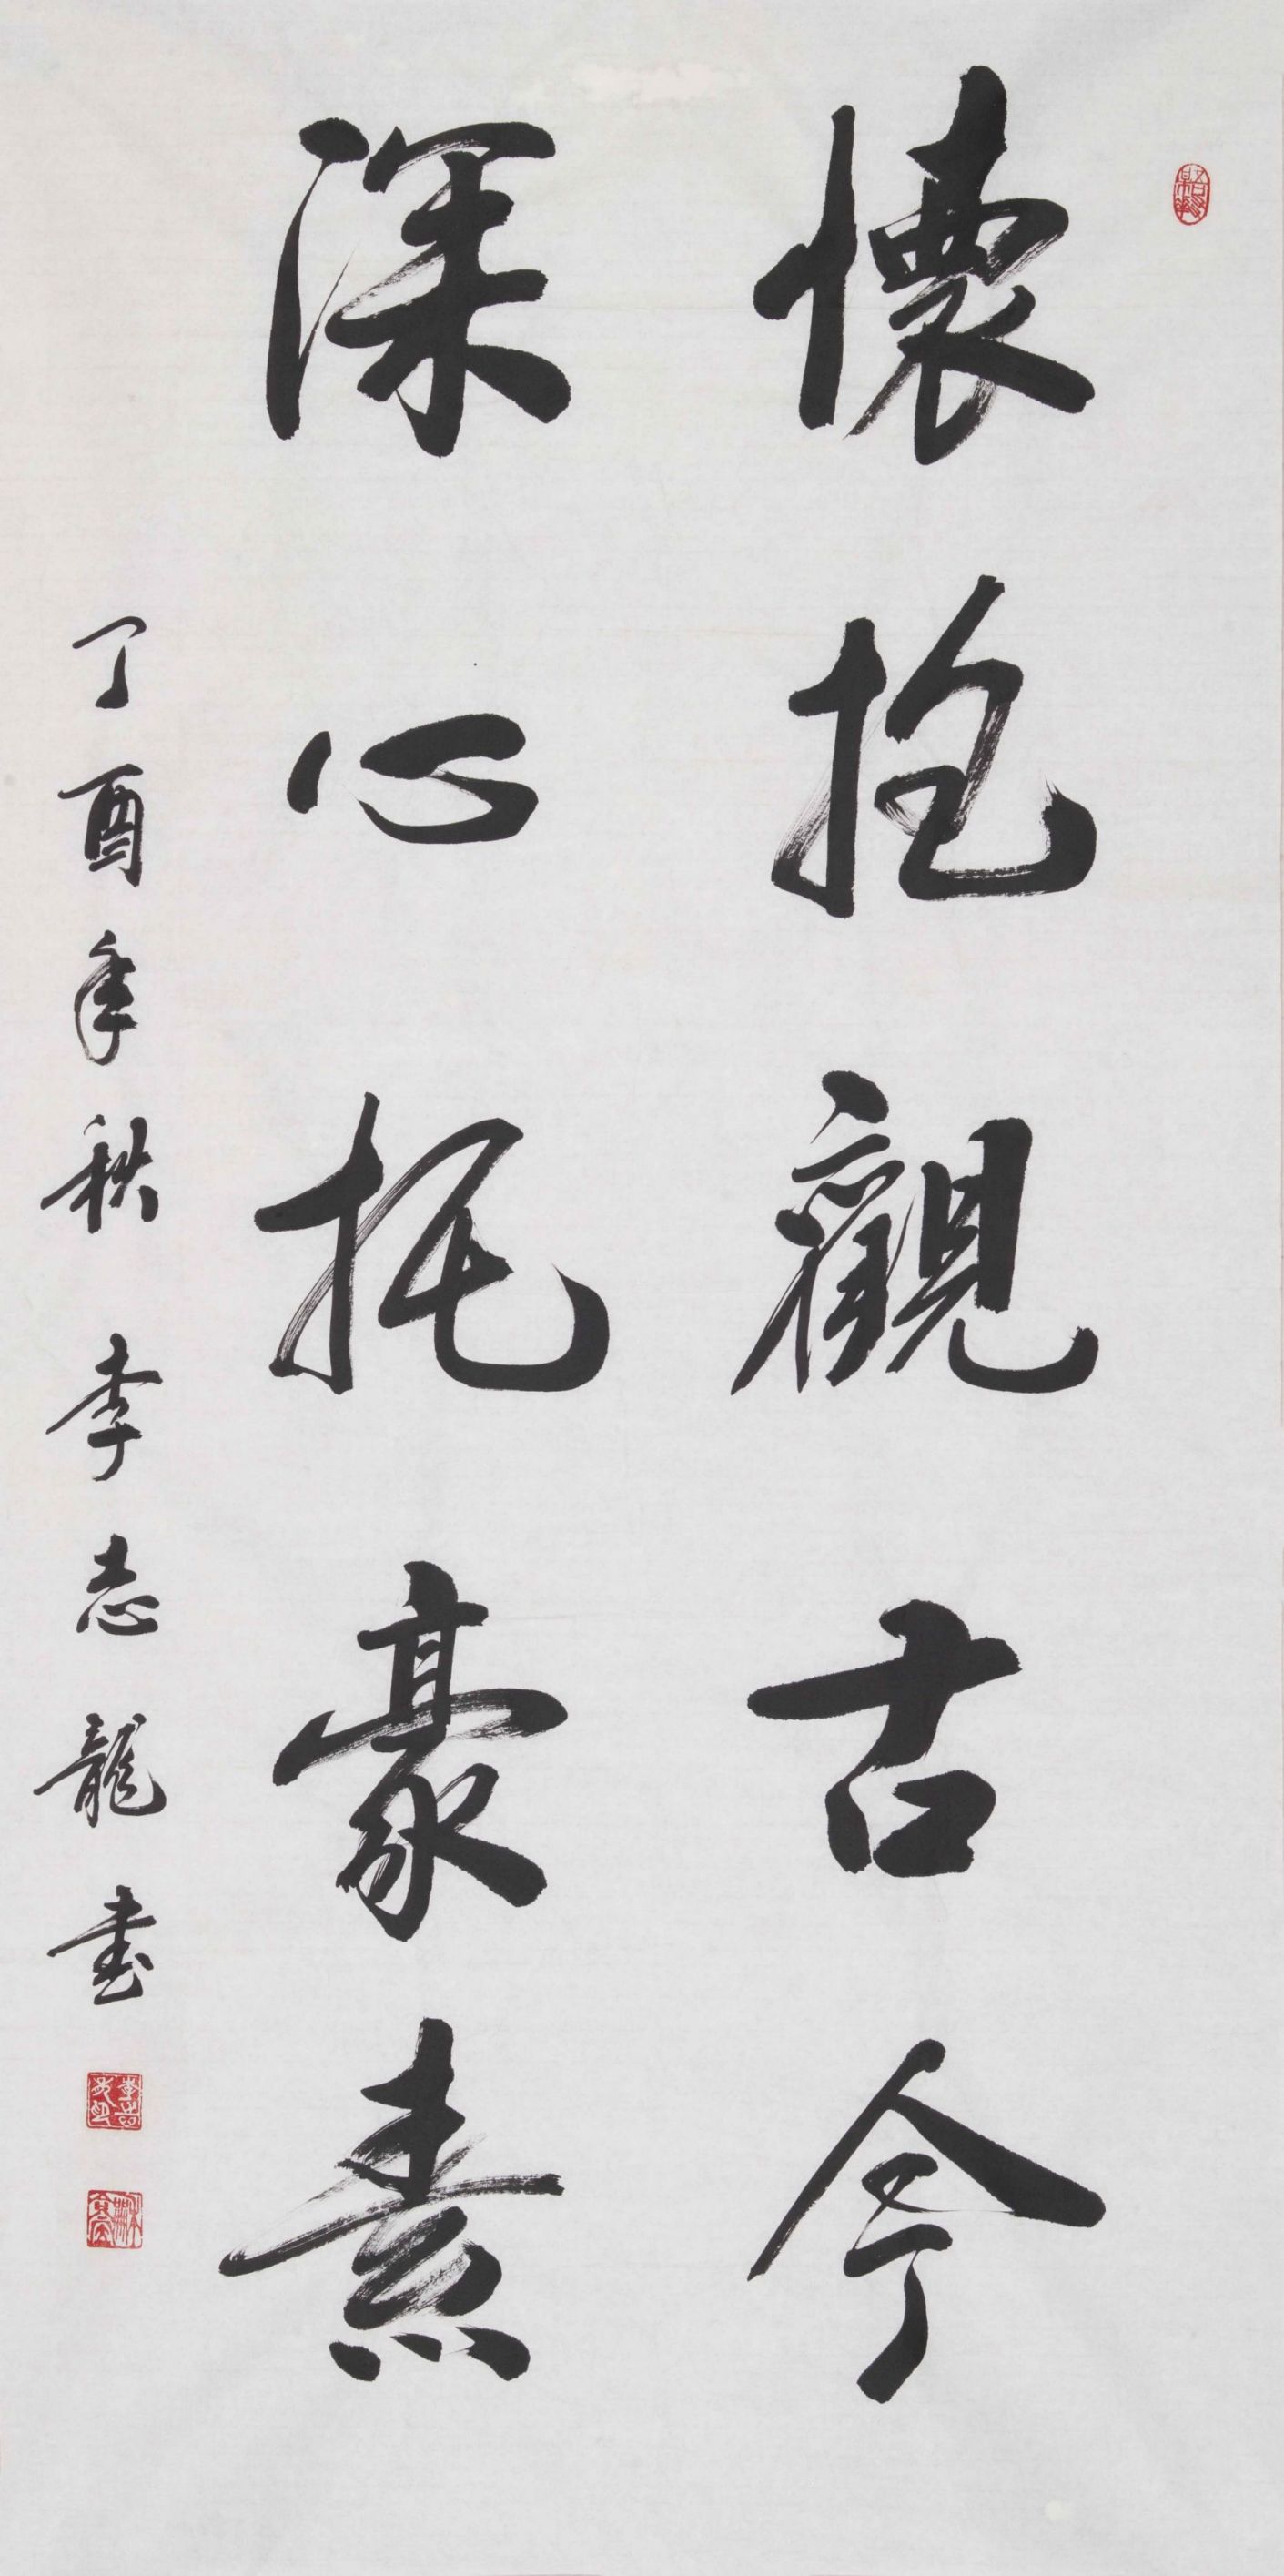 懷抱觀古今
深心托豪素
丁酉年秋 李志龍書